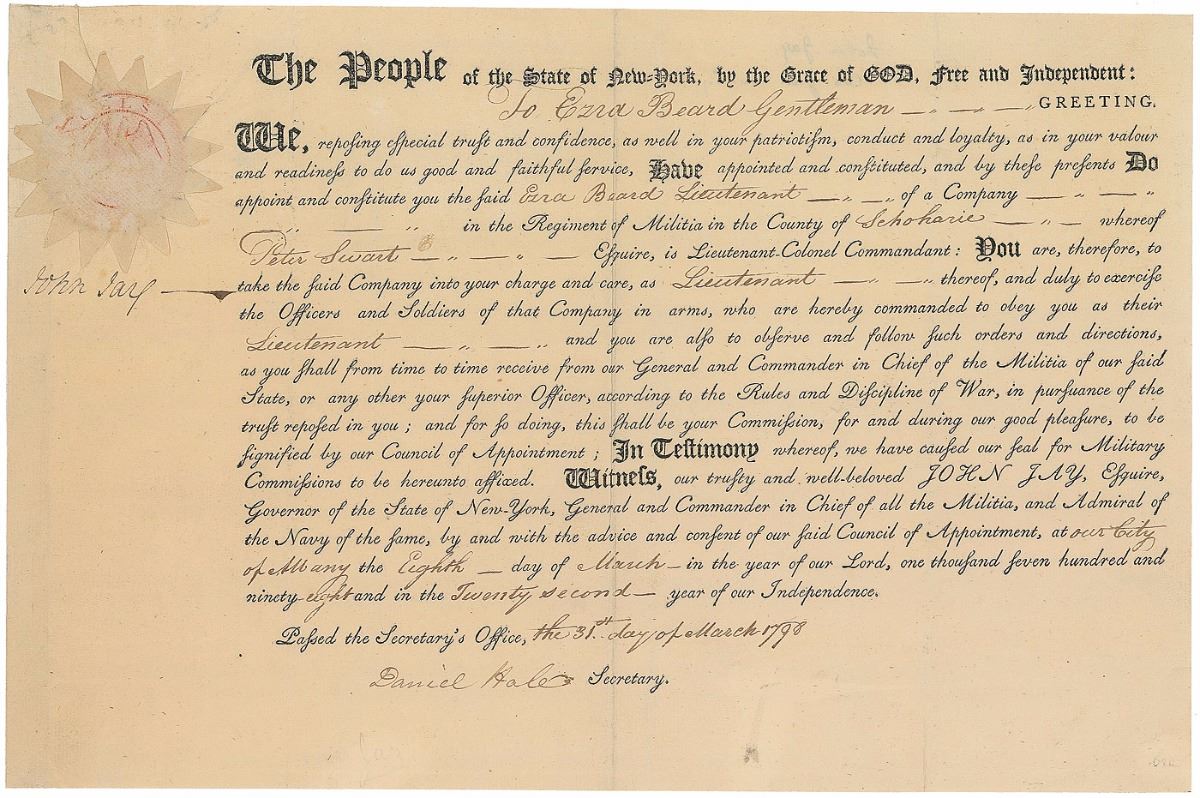 The People of the State of New-York, by the Grace of GOD, Free and Independent:
To Ezra Beard Gentleman — „ — „ GREETING.
We, repoſing eſpecial truſt and confidence, as well in your patriotiſm, conduct and loyalty, as in your valour
and readineſs to do us good and faithful ſervice, Have appointed and conſtituted, and by theſe preſents Do
appoint and conſtitute you the ſaid Ezra Beard Lieutenant — „ — „ of a Company — „ — „
„ — „ in the Regiment of Militia in the County of Schoharie — „ — whereof
Peter Swart — „ — „ — Eſquire, is Lieutenant-Colonel Commandant: You are, therefore, to
John Jay
take the ſaid Company into your charge and care, as Lieutenant — „ — „ thereof, and duty to exerciſe
the Officers and Soldiers of that Company in arms, who are hereby commanded to obey you as their
Lieutenant — „ — „ and you are alſo to obſerve and follow ſuch orders and directions,
as you ſhall from time to time receive from our General and Commander in Chief of the Militia of our ſaid
State, or any other your ſuperior Officer, according to the Rules and Diſcipline of War, in purſuance of the
truſt repoſed in you; and for ſo doing, this ſhall be your Commiſſion, for and during our good pleaſure, to be
ſignified by our Council of Appointment; In Teſtimony whereof, we have cauſed our ſeal for Military
Commiſſions to be hereunto affixed. Witneſs, our truſty and well-beloved JOHN JAY, Eſquire,
Governor of the State of New-York, General and Commander in Chief of all the Militia, and Admiral of
the Navy of the ſame, by and with the advice and conſent of our ſaid Council of Appointment, at our City
of Albany the Eighth — day of March — in the year of our Lord, one thouſand ſeven hundred and
ninety-eight and in the Twenty second — year of our Independence.
Paſſed the Secretary's Office, the 31st day of March 1798
Daniel Hale Secretary.